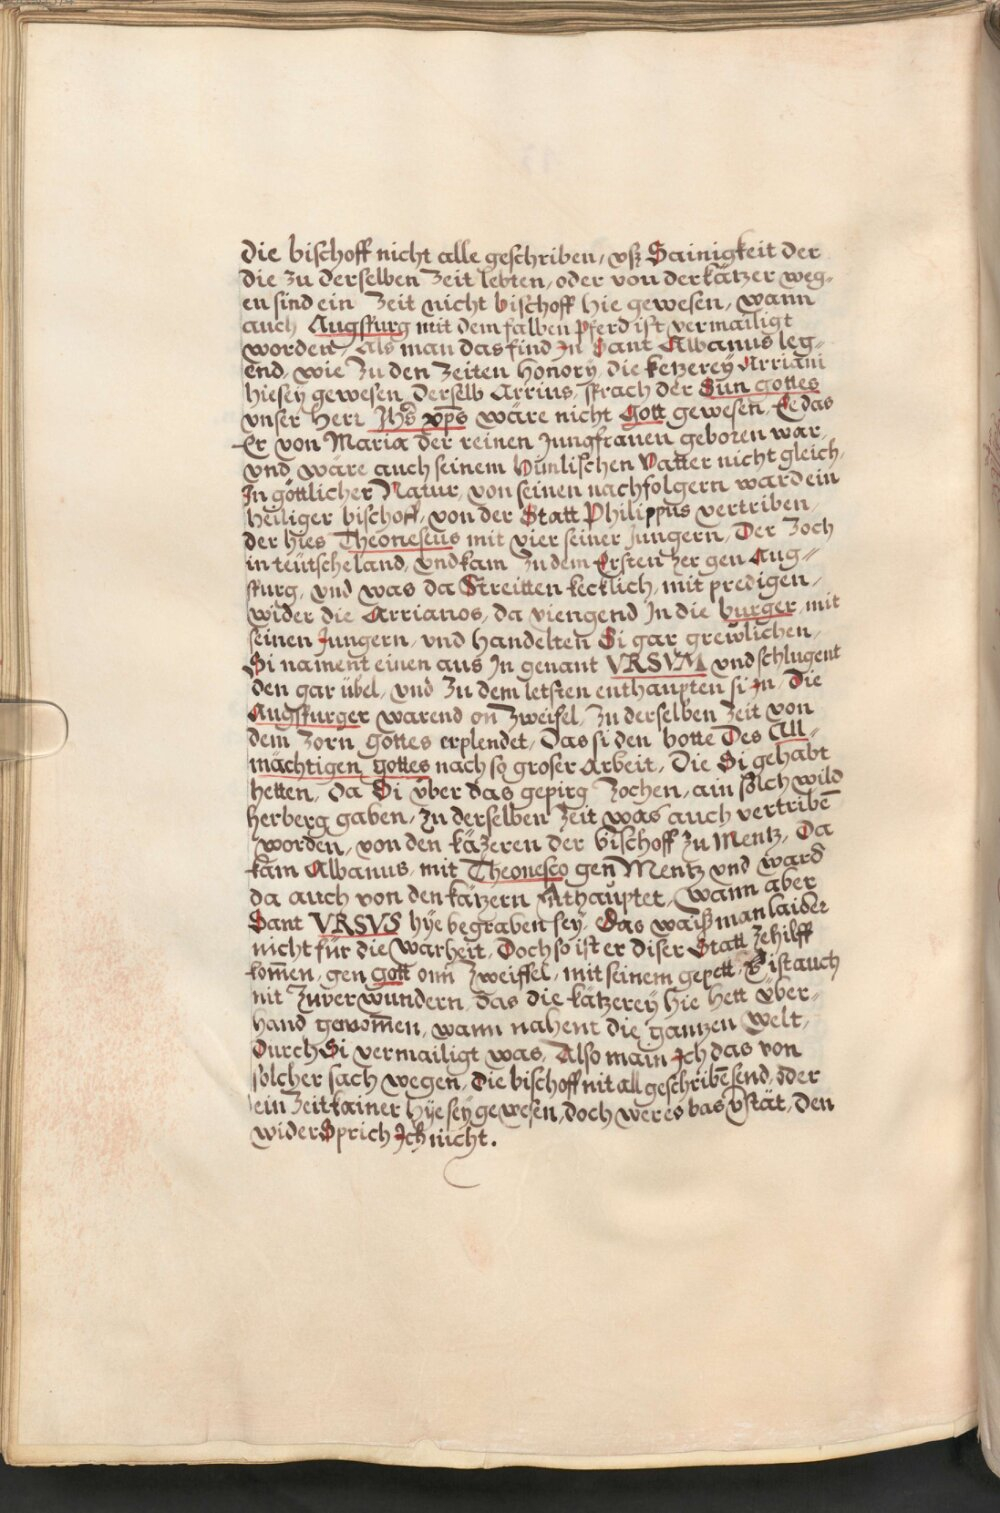 die bischoff nicht alle geschriben, vsz Sainigkeit der
die zu derselben Zeit lebten, oder von der kätzer weg-
en sind ein Zeit nicht bischoff hie gewesen, wann
auch Augspurg mit dem falben Pferd ist vermailigt
worden, Als man das find In Sant Albanus leg-
end, wie Zu den Zeiten Honory, die ketzerey Arriani
hiesey gewesen, derselb Arrius, sprach der Sun gottes
vnser Herr Jhs xps wäre nicht Gott gewesen, Ee das
Er von Maria der reinen Jungfrauen geboren war,
vnd wäre auch seinem Himlischen Vatter nicht gleich,
In göttlicher Natur, von seinen nachfolgern ward ein
heiliger bischoff, von der Statt Philippus vertriben,
der hies Theoneseus mit vier seiner Jungern, Der Zoch
in teütsche land, vnd kam Zu dem Ersten her gen Aug-
spurg, vnd was da Streitten kecklich, mit predigen,
wider die Arrianos, da viengend In die burger, mit
seinen Jungern, vnd handelten Si gar grewlichen,
Si nament einen aus In genant VRSVM vnd schlugent
den gar übel, vnd Zu dem letsten enthaupten si In, Die
Augspurger warend on Zweifel, Zu derselben Zeit von
dem Zorn gottes erplendet, Das si den botte Des All-
mächtigen gottes nach so groser Arbeit, Die Si gehabt
hetten, Da Si über das gepirg Zochen, ain sölch wild
herberg gaben, Zu derselben Zeit was auch vertribē
worden, von den käzeren der bischoff Zu Mentz, Da
kam Albanus, mit Theonesco gen Mentz vnd ward
da auch von den kätzern Athauptet, Wann aber
Sant VRSVS hÿe begraben seÿ, Das waisz man laider
nicht für die Warheit, Doch so ist er diser Statt Zehilff
komen, gen gott onn Zweiffel, mit seinem gepett, Es ist auch
nit Zuverwundern, das die kätzereÿ hie hett über-
hand genomēn, wann nahent die gantzen welt,
Durch Si vermailigt was, Also main Ich das von
sölcher sach wegen, Die bischoff nit all geschribē send, oder
ein Zeit kainer hÿe seÿ gewesen, doch wer es bas v̈stät, den
wider Sprich Ich nicht.